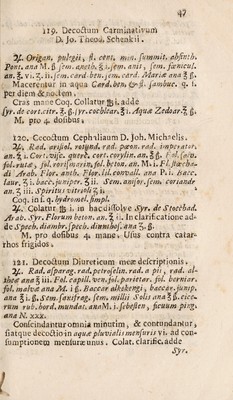 47
119. Decoctum Carminativum
D. Jo. Theod. Schenkii.
♃. Origan. pulegii, fl. cent. min. summit. absinth.
Pont. ana M. ß sem. aneth. ʒi. sem. anis, sem. fœnicul.
an. ʒ. vi. ʒ. ii. sem. card. ben. sem. card. Mariæ ana ʒ ß.
Macerentur in aqua Card. ben. & fl. sambuc. q. i.
per diem & noctem.
Cras mane Coq. Collatur ℔ i. adde
syr. de cort. citr. ℥. ß, syr. cochlear. ℥i. Aquæ Zedoar. ℥ ß.
M. pro 4. dosibus
120. Decoctum Cephalicum D. Joh. Michaelis.
♃. Rad. aristol. rotund. rad. pæon. rad. imperator.
an. ℥ i. Cort. visc. querc. cort. corylin. an. ℥ ß. Fol. salv.
fol. ruta, fol. rorismarin. fol. beton. an. M. i. Fl. stœcha-
di Arab. Flor. anth. Flor. lil. convall. ana P. i. Bacc.
laur. ʒ i. bacc. juniper. ʒ ii. Sem. anisor. sem. coriandr
an. ʒ iii. Spiritus vitrioli ʒ i.
Coq. in s. q. hydromel. simpl.
♃. Colatur. ℔ i. in hac dissolve Syr. de Stœchad.
Arab. Syr. Florum beton. an. ℥ ii. In clarificatione ad-
de Specb. diambr. specb. diamhos. ana ʒ. ß.
M. pro dosibus 4. mane. Usus contra catar-
rhos frigidos.
121. Decoctum Diureticum meæ descriptionis.
♃. Rad. asparag. rad. petroselin. rad. a pii, rad. al-
theæ ana ℥ iii. Fol. capill. ven. fol. pariter. fol. berniar.
fol. malva ana M. i ß. Baccar alkekengi, baccar. junip.
ana ℥ i. ß. Sem. saxifrag. sem. milli Solis ana ℥ ß. cice-
rum rub. hord. mundat. ana M. i. sebesten, ficuum ping.
ana N. xxx.
Conscindantur omnia minutim, & contundantur,
fiatque decoctio in aquæ pluvialis mensuris vi. ad con-
sumptionem mensuræ unus. Colat. clarific. adde
Syr.